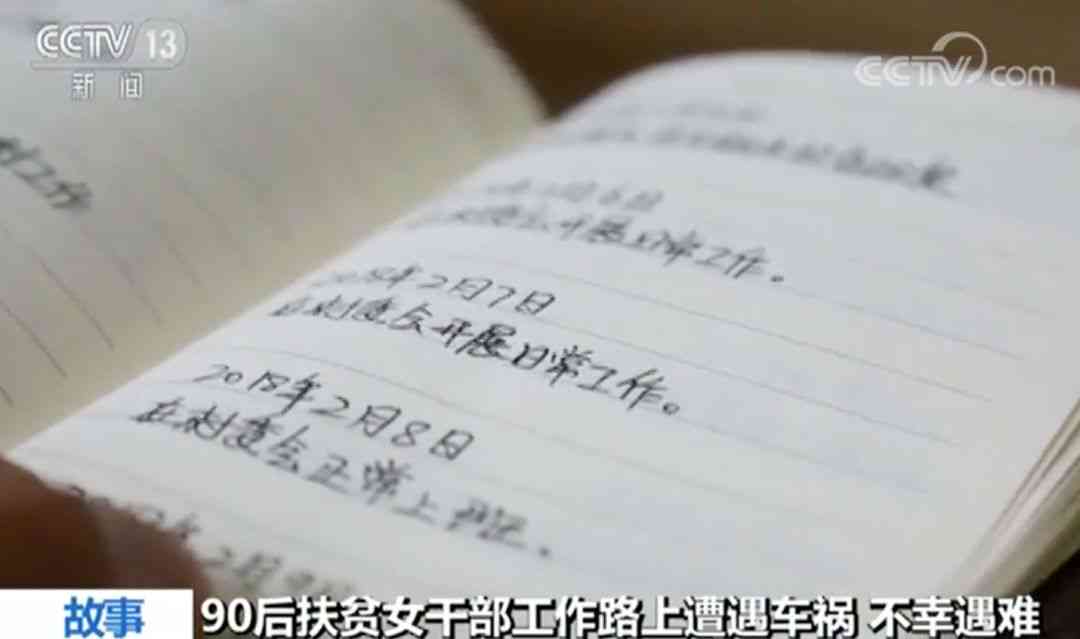 CCTV 13
新闻
CCTV.com
村工作
月6日
开展日常工作。
2018年2月7日
在村委会开展日常工作。
2018年2月8日
在村委会正常上班.
2月9日
故事
90后扶贫女干部工作路上遭遇车祸 不幸遇难